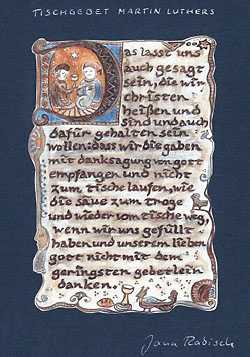 TISCHGEBET MARTIN LUTHERS
Das lasst uns
auch gesagt
sein, die wir
christen
heißen und
sind und auch
dafür gehalten sein
wollen: dass wir die gaben
mit danksagung von gott
empfangen und nicht
zum tische laufen, wie
die säue zum troge
und wieder vom tische weg,
wenn wir uns gefüllt
haben und unserem lieben
gott nicht mit dem
geringsten gebetlein
danken.
Jana Rabisch